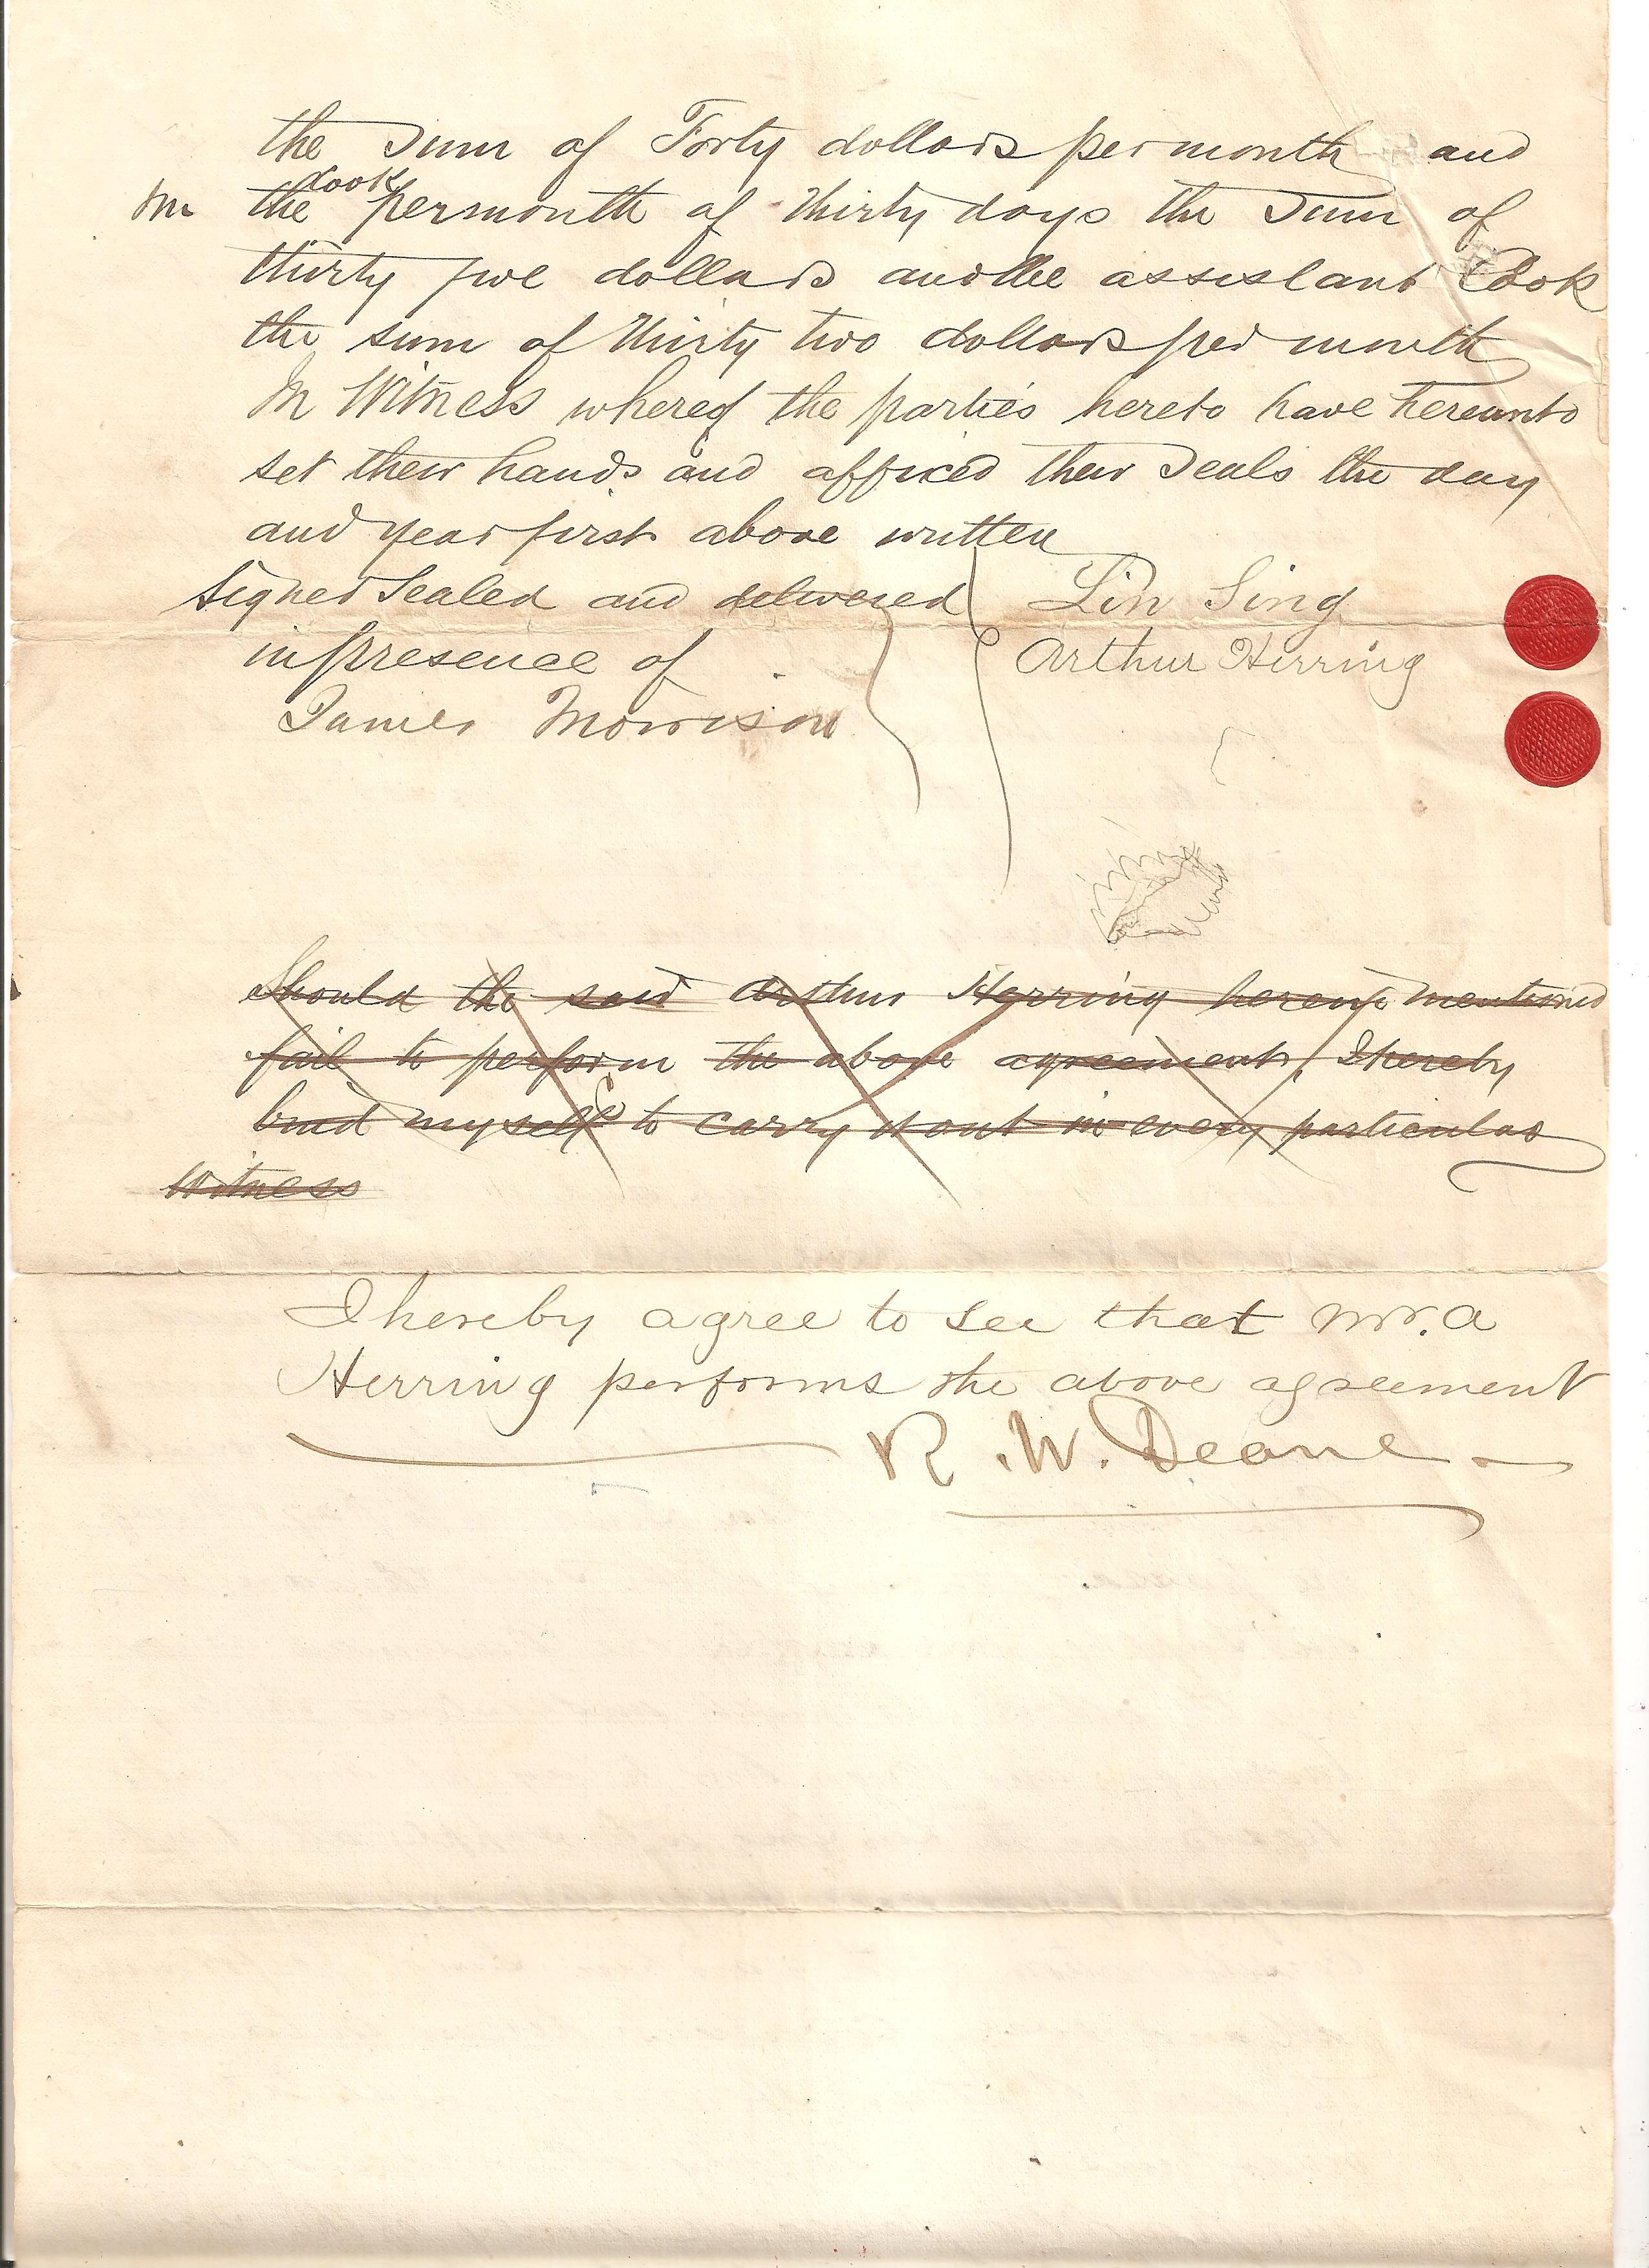 the Sum of Forty dollars per month and
Cook
Jm the per month of thirty days the Sum of
thirty five dollars and the assistant Cook
the sum of thirty two dollars per month
In Witness whereof the parties hereto have hereunto
set their hands and affixed their Seals the day
and year first above written
Signed Sealed and delivered Lin Sing
in presence of Arthur Herring
James Morrison
Should the said Arthur Herring herein mentioned
fail to perform the above agreement, I hereby
bind myself to carry it out in every particular
Witness
I hereby agree to see that Mr. A
Herring performs the above agreement
R. W. Deane